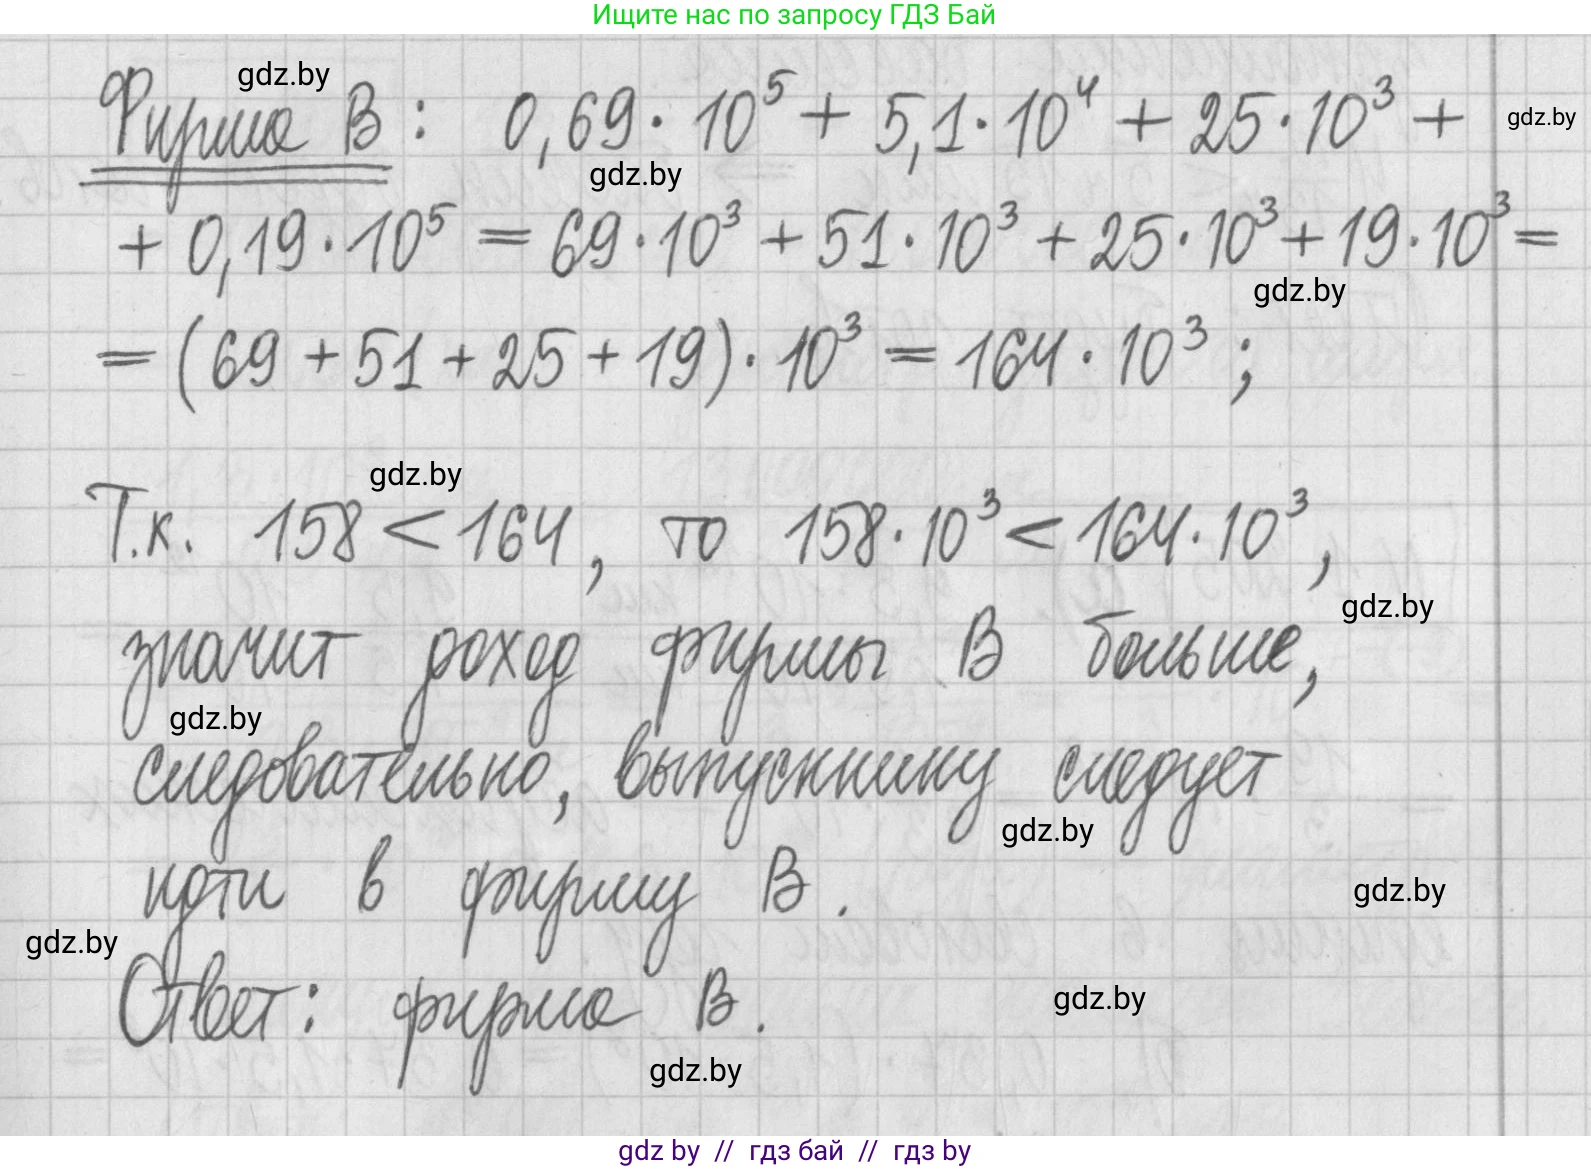 Ищите нас по запросу ГДЗ Бай
gdz.by
Фирма В: 0,69·10⁵ + 5,1·10⁴ + 25·10³ +
gdz.by
gdz.by
+ 0,19·10⁵ = 69·10³ + 51·10³ + 25·10³ + 19·10³ =
gdz.by
= (69 + 51 + 25 + 19)·10³ = 164·10³;
gdz.by
Т.к. 158 < 164, то 158·10³ < 164·10³,
gdz.by
значит доход фирмы В больше,
gdz.by
следовательно, выпускнику следует
gdz.by
идти в фирму В.
gdz.by
gdz.by
Ответ: фирма В.
gdz.by
gdz.by
gdz by // гдз бай // гдз by